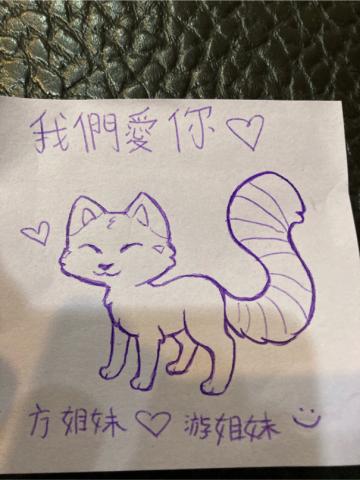 我們愛你♡
方姐妹♡游姐妹